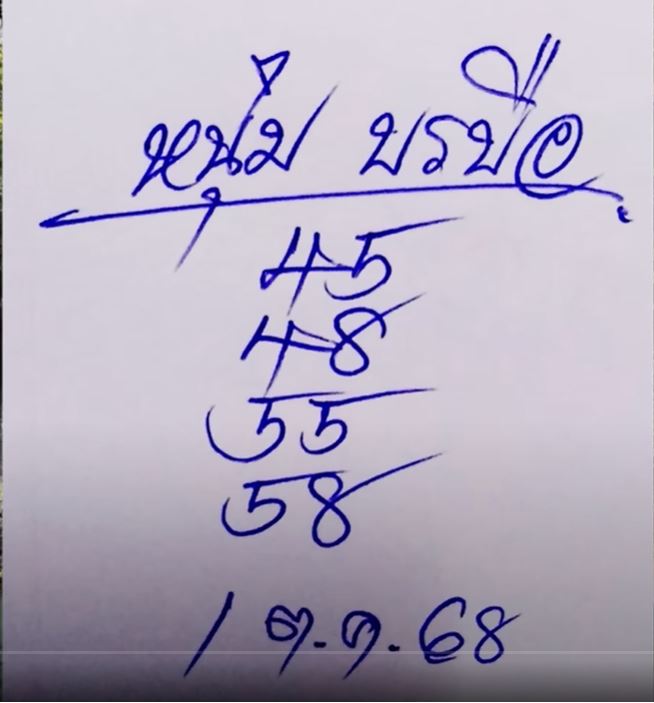 หนุ่ม บรบือ
45
48
55
58
1 ต.ค. 68